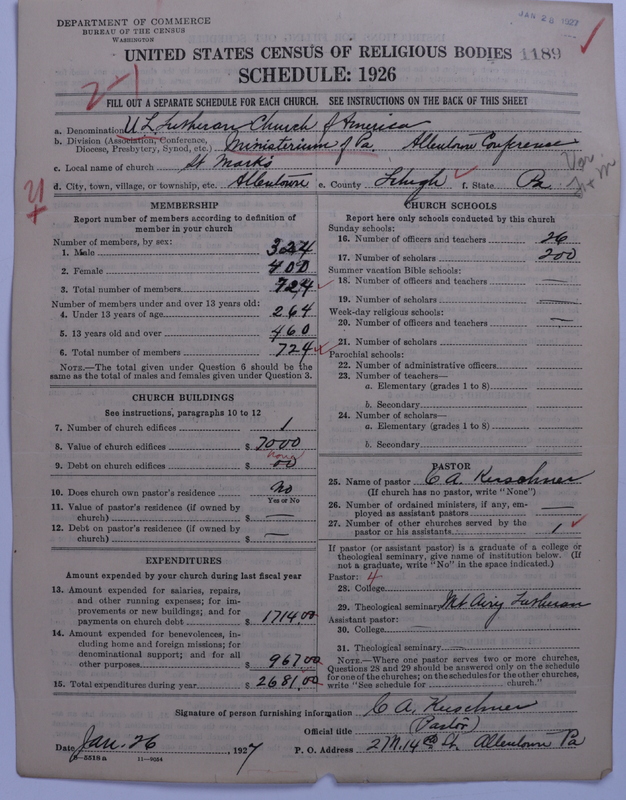 DEPARTMENT OF COMMERCE
BUREAU OF THE CENSUS
WASHINGTON
JAN 28 1927
UNITED STATES CENSUS OF RELIGIOUS BODIES 1189
SCHEDULE: 1926
2-1
FILL OUT A SEPARATE SCHEDULE FOR EACH CHURCH. SEE INSTRUCTIONS ON THE BACK OF THIS SHEET
a. Denomination U L Lutheran Church of America
b. Division (Association, Conference, Diocese, Presbytery, Synod, etc.) Ministerium of Pa Allentown Conference
c. Local name of church St Mark's
d. City, town, village, or township, etc. Allentown e. County Lehigh f. State Pa
MEMBERSHIP
Report number of members according to definition of
member in your church
Number of members, by sex:
1. Male 324
2. Female 400
3. Total number of members 724
Number of members under and over 13 years old:
4. Under 13 years of age 264
5. 13 years old and over 460
6. Total number of members 724
NOTE.—The total given under Question 6 should be the
same as the total of males and females given under Question 3.
CHURCH BUILDINGS
See instructions, paragraphs 10 to 12
7. Number of church edifices 1
8. Value of church edifices $ 7000
none
9. Debt on church edifices $ 00
10. Does church own pastor's residence No
Yes or No
11. Value of pastor's residence (if owned by
church) $ —
12. Debt on pastor's residence (if owned by
church) $ —
EXPENDITURES
Amount expended by your church during last fiscal year
13. Amount expended for salaries, repairs,
and other running expenses; for im-
provements or new buildings; and for
payments on church debt $ 1714.00
14. Amount expended for benevolences, in-
cluding home and foreign missions; for
denominational support; and for all
other purposes $ 967.00
15. Total expenditures during year $ 2681.00
CHURCH SCHOOLS
Report here only schools conducted by this church
Sunday schools:
16. Number of officers and teachers 26
17. Number of scholars 200
Summer vacation Bible schools:
18. Number of officers and teachers —
19. Number of scholars —
Week-day religious schools:
20. Number of officers and teachers —
21. Number of scholars
Parochial schools:
22. Number of administrative officers
23. Number of teachers—
a. Elementary (grades 1 to 8)
b. Secondary
24. Number of scholars—
a. Elementary (grades 1 to 8)
b. Secondary
PASTOR
25. Name of pastor C A Kerschner
(If church has no pastor, write "None")
26. Number of ordained ministers, if any, em-
ployed as assistant pastors —
27. Number of other churches served by the
pastor or his assistants 1
If pastor (or assistant pastor) is a graduate of a college or
theological seminary, give name of institution below. (If
not a graduate, write "No" in the space indicated.)
Pastor: 4
28. College
29. Theological seminary Mt Airy Lutheran
Assistant pastor:
30. College —
31. Theological seminary —
NOTE.—Where one pastor serves two or more churches,
Questions 28 and 29 should be answered only on the schedule
for one of the churches; on the schedules for the other churches,
write "See schedule for church."
Signature of person furnishing information C A Kerschner
Official title (Pastor)
Date Jan. 26, 1927 P. O. Address 2 N. 14th St. Allentown Pa
8—5518a 11—9054